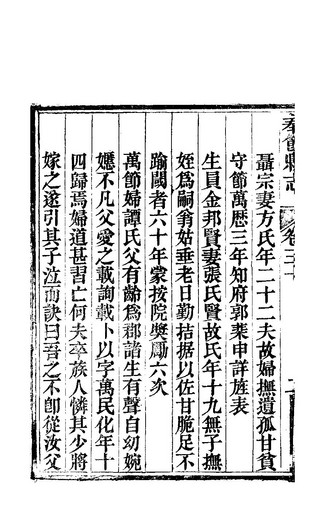 奉節縣志 卷三十
聶宗妻方氏年二十二夫故婦撫遺孤甘貧
守節萬歷三年知府郭棐申詳旌表
生員金邦賢妻張氏賢故氏年十九無子撫
姪爲嗣翁姑垂老日勤拮据以佐甘脆足不
踰閾者六十年蒙按院奬勵六次
萬節婦譚氏父有齡爲郡諸生有聲自幼婉
嬺不凡父愛之載詢載卜以字萬民化年十
四歸焉婦道甚習亡何夫卒族人憐其少將
嫁之遂引其子泣而訣曰吾之不卽從汝父